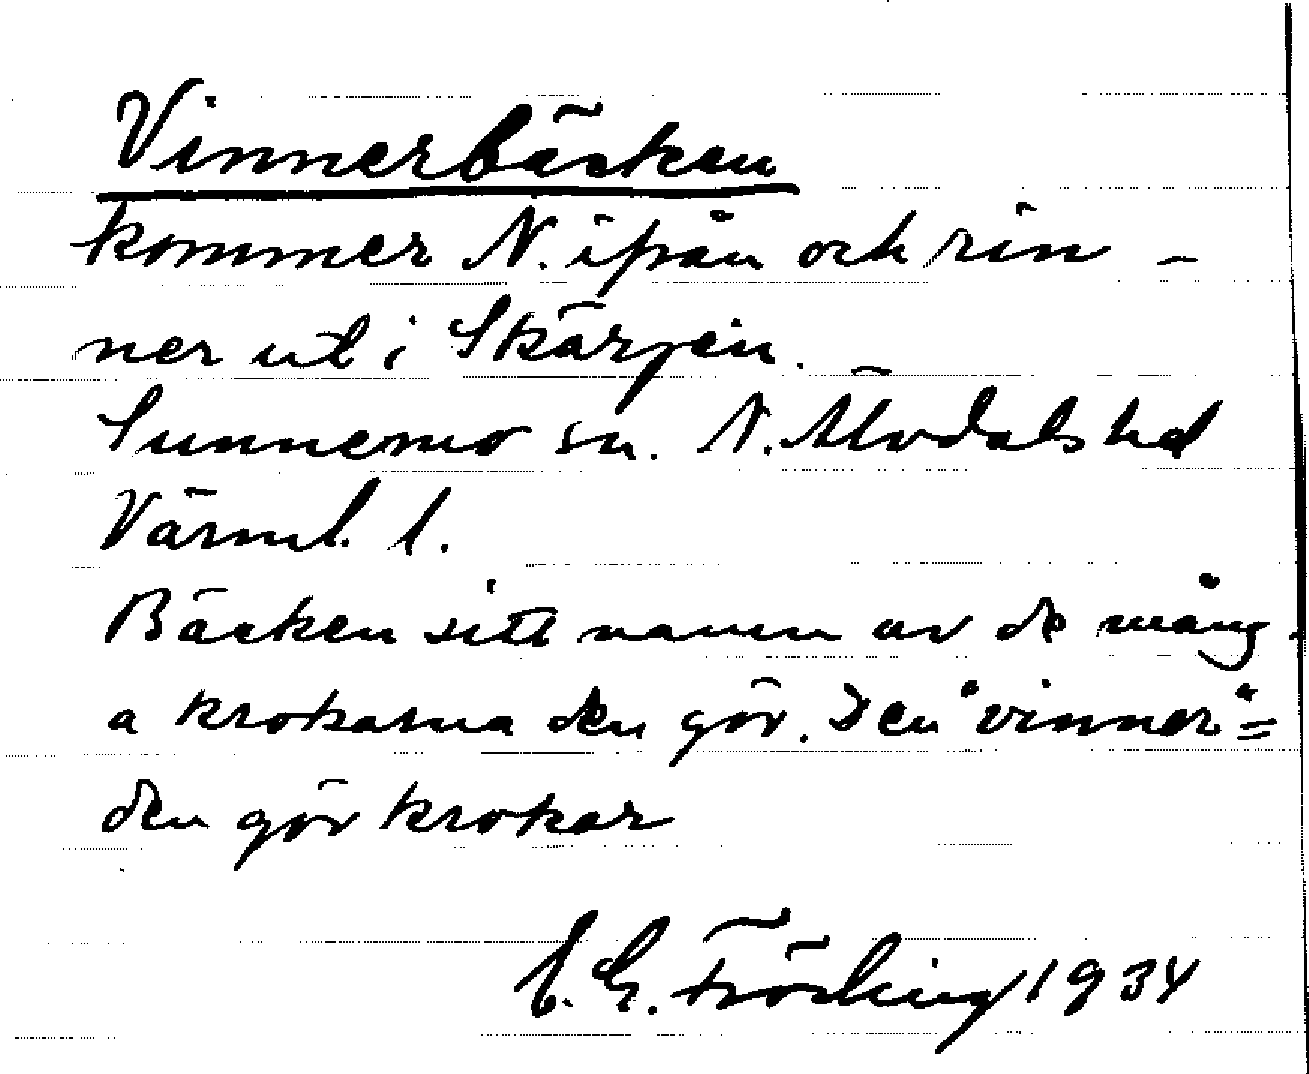 Vinnerbäcken
kommer N. ifrån och rin-
ner ut i Skärjen.
Sunnemo sn. N. Älvdals hd
Värml. l.
Bäcken sitt namn av de mång-
a krokarna den gör. Den "vinner"=
den gör krokar
G. Fröding 1934